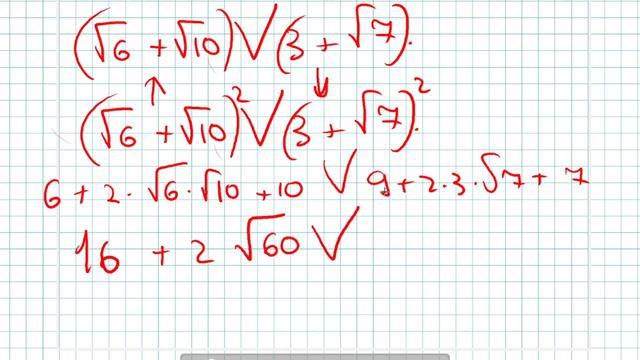 (√6 + √10) V (3 + √7).
↑ ↓
(√6 + √10)² V (3 + √7)².
6 + 2 · √6 · √10 + 10 V 9 + 2 · 3 · √7 + 7
16 + 2 √60 V